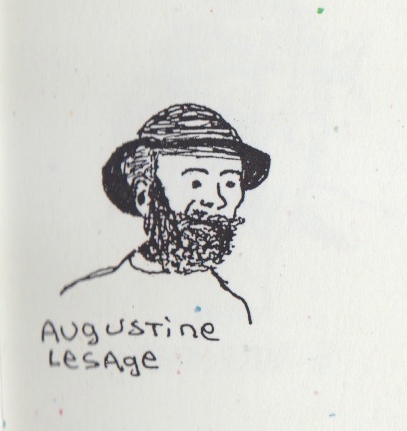 AUgUSTine
LesAge